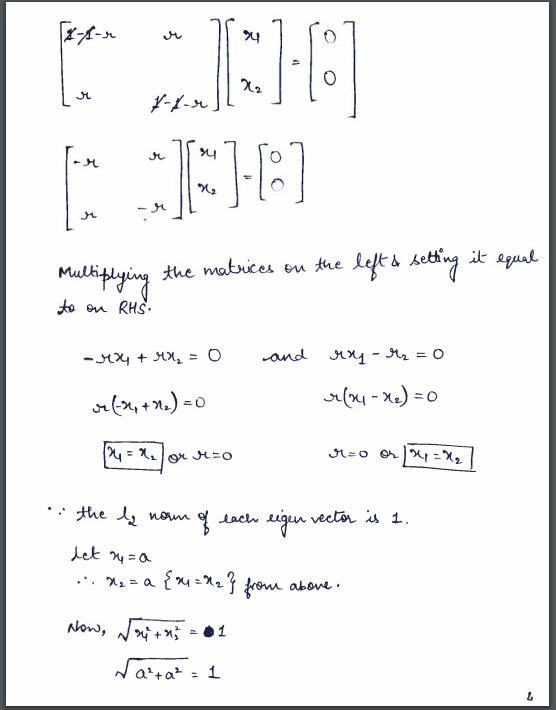 [1-1-r r] [x₁] = [0]
[r 1-1-r] [x₂] [0]
[-r r] [x₁] = [0]
[r -r] [x₂] [0]
Multiplying the matrices on the left & setting it equal
to on RHS.
-rx₁ + rx₂ = 0 and rx₁ - r₂ = 0
r(-x₁ + x₂) = 0 r(x₁ - x₂) = 0
x₁ = x₂ or r=0 r=0 or x₁ = x₂
∵ the l₂ norm of each eigen vector is 1.
Let x₁ = a
∴ x₂ = a {x₁ = x₂} from above.
Now, √(x₁² + x₂²) = 1
√(a² + a²) = 1